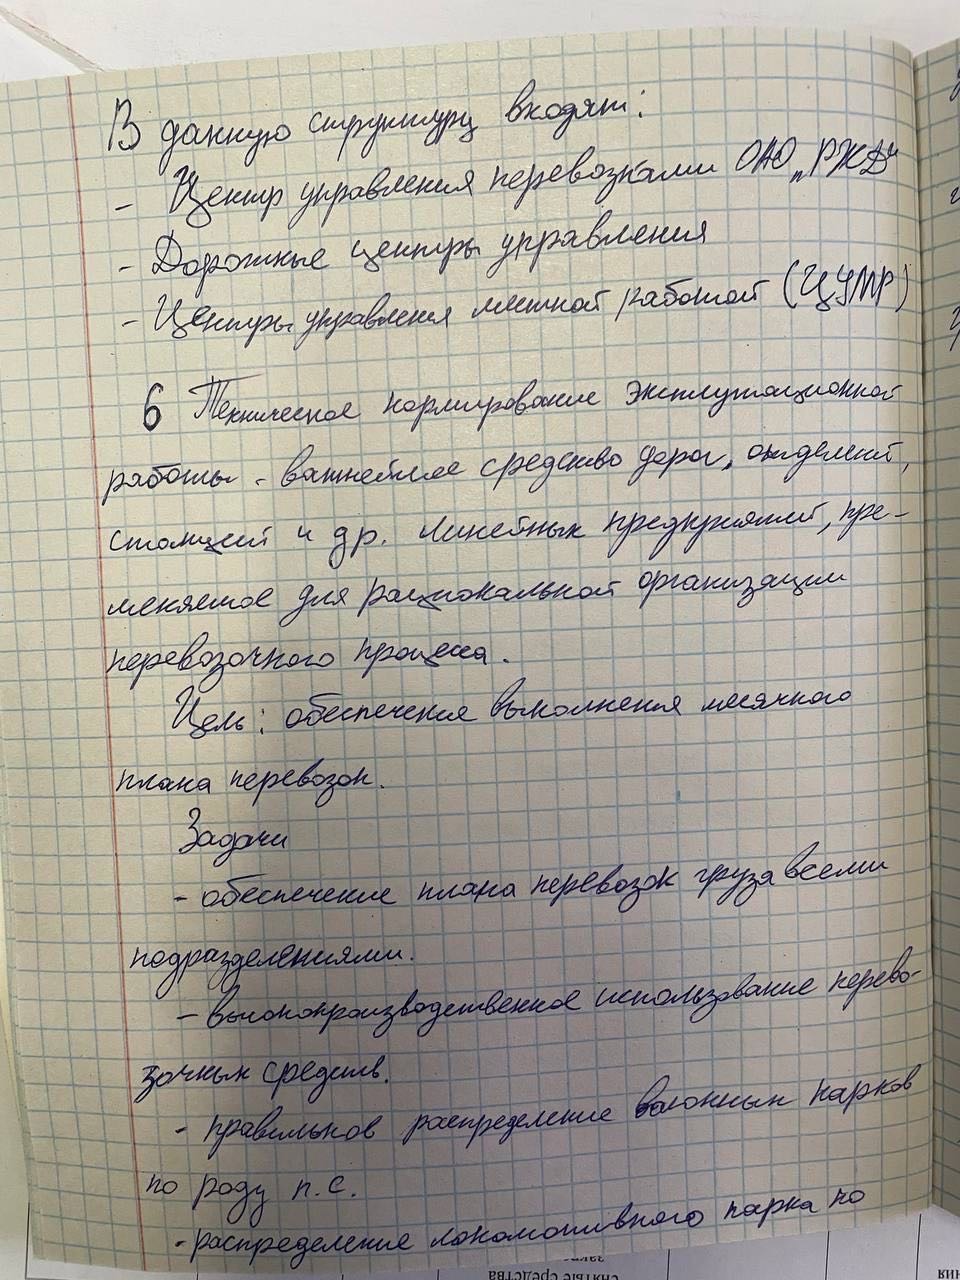 В данную структуру входят:
- Центр управления перевозками ОАО „РЖД"
- Дорожные центры управления
- Центры управления местной работой (ЦУМР)
6 Техническое нормирование эксплутационной
работы - важнейшее средство дорог, отделений,
станций и др. линейных предприятий, при-
меняемое для рациональной организации
перевозочного процесса.
Цель: обеспечение выполнения месячного
плана перевозок.
Задачи
- обеспечение плана перевозок груза всеми
подразделениями.
- высокопроизводственное использование перево-
зочных средств.
- правильное распределение вагонных парков
по роду п.с.
- распределение локомотивного парка по
снятые средства